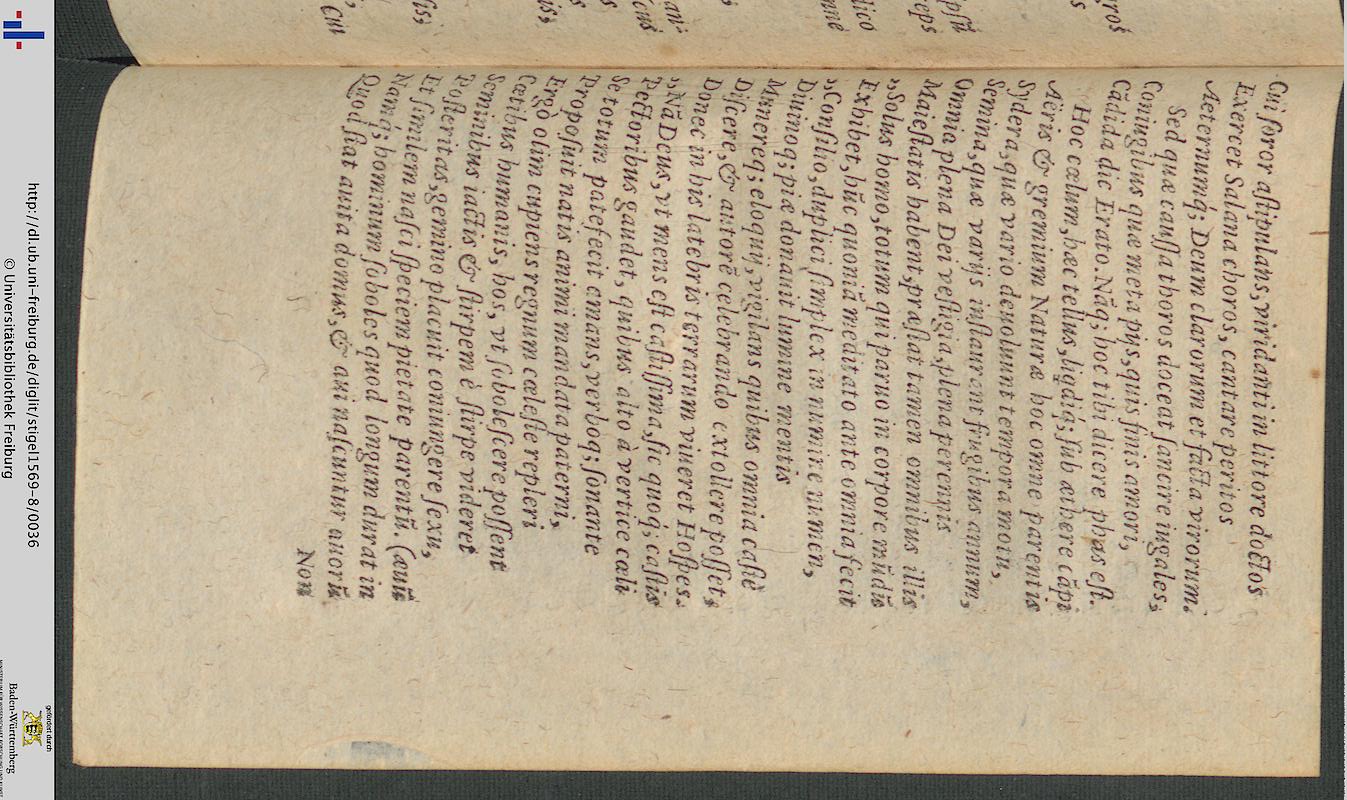 Cui soror astipulans, viridanti in littore doctos
Exercet Salana choros, cantare peritos
Aeternumq; Deum clarorum et facta virorum.
Sed quæ caussa thoros doceat sancire iugales,
Coniugibus quæ meta pijs, quis finis amori,
Cādida dic Erato. Nāq; hoc tibi dicere phas est.
Hoc cœlum, hæc tellus, liqdiq; sub æthere cāpi
Aëris & gremium Naturæ hoc omne parentis
Sydera, quæ vario deuoluunt tempora motu,
Semina, quæ varijs instaurant frugibus annum,
Omnia plena Dei vestigia, plena perennis
Maiestatis habent, præstat tamen omnibus illis
„Solus homo, totum qui paruo in corpore mūdū
Exhibet, hūc quoniā meditato ante omnia fecit
„Consilio, duplici simplex in numine numen,
Diuinoq; piæ donauit lumine mentis
Munereq; eloquij, vigilans quibus omnia castè
Discere, & autorē celebrando extollere posset,
Donec in his latebris terrarum viueret Hospes.
„Nā Deus, vt mens est castissima, sic quoq; castis
Pectoribus gaudet, quibus alto à vertice cœli
Se totum patefecit amans, verboq; sonante
Proposuit natis animi mandata paterni,
Ergò olim cupiens regnum cœleste repleri
Cœtibus humanis, hos, vt sobolescere possent
Seminibus iactis & stirpem è stirpe videret
Posteritas, gemino placuit coniungere sexu,
Et similem nasci speciem pietate parentū. (æuū
Namq; hominum soboles quod longum durat in
Quod stat auita domus, & aui nascuntur auorū
Non
ipsū
Cui
http://dl.ub.uni-freiburg.de/diglit/stigel1569-8/0036
© Universitätsbibliothek Freiburg
gefördert durch
Baden-Württemberg